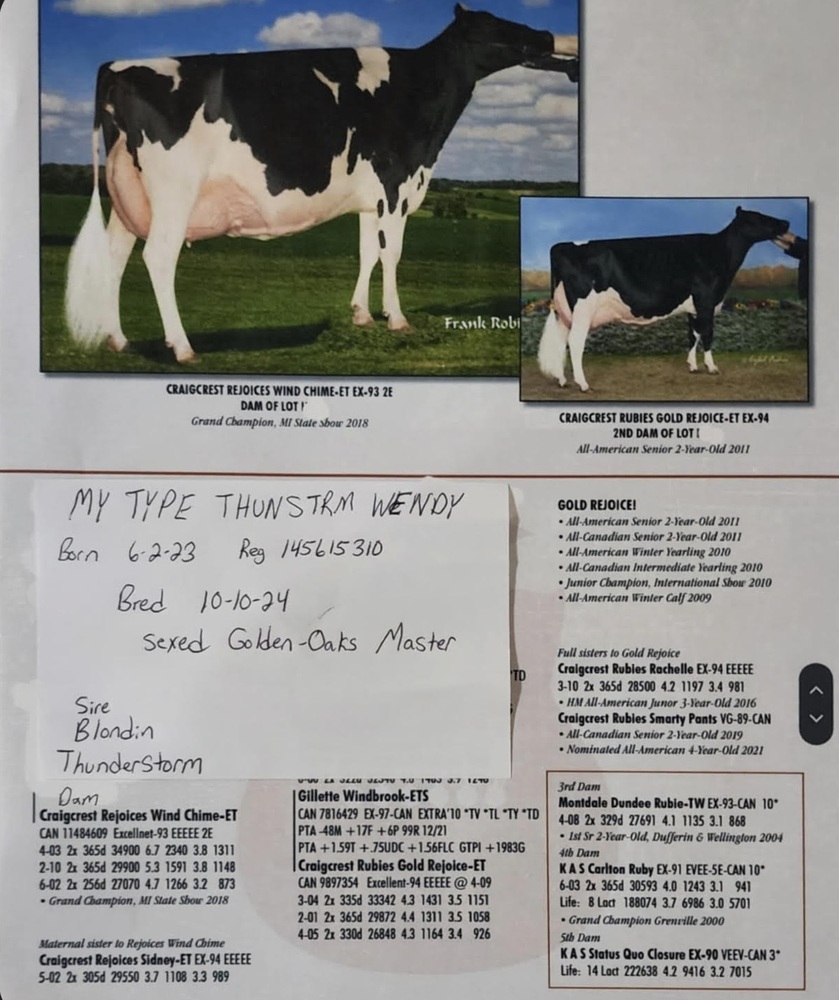 Frank Robi
CRAIGCREST REJOICES WIND CHIME-ET EX-93 2E
DAM OF LOT 1
Grand Champion, MI State Show 2018
CRAIGCREST RUBIES GOLD REJOICE-ET EX-94
2ND DAM OF LOT 1
All-American Senior 2-Year-Old 2011
MY TYPE THUNSTRM WENDY
Born 6-2-23 Reg 145615310
Bred 10-10-24
Sexed Golden-Oaks Master
Sire
Blondin
Thunderstorm
Dam
Craigcrest Rejoices Wind Chime-ET
CAN 11484609 Excellnet-93 EEEEE 2E
4-03 2x 365d 34900 6.7 2340 3.8 1311
2-10 2x 365d 29900 5.3 1591 3.8 1148
6-02 2x 256d 27070 4.7 1266 3.2 873
• Grand Champion, MI State Show 2018
Maternal sister to Rejoices Wind Chime
Craigcrest Rejoices Sidney-ET EX-94 EEEEE
5-02 2x 305d 29550 3.7 1108 3.3 989
TD
Gillette Windbrook-ETS
CAN 7816429 EX-97-CAN EXTRA'10 *TV *TL *TY *TD
PTA -48M +17F +6P 99R 12/21
PTA +1.59T +.75UDC +1.56FLC GTPI +1983G
Craigcrest Rubies Gold Rejoice-ET
CAN 9897354 Excellent-94 EEEEE @ 4-09
3-04 2x 335d 33342 4.3 1431 3.5 1151
2-01 2x 365d 29872 4.4 1311 3.5 1058
4-05 2x 330d 26848 4.3 1164 3.4 926
GOLD REJOICE!
• All-American Senior 2-Year-Old 2011
• All-Canadian Senior 2-Year-Old 2011
• All-American Winter Yearling 2010
• All-Canadian Intermediate Yearling 2010
• Junior Champion, International Show 2010
• All-American Winter Calf 2009
Full sisters to Gold Rejoice
Craigcrest Rubies Rachelle EX-94 EEEEE
3-10 2x 365d 28500 4.2 1197 3.4 981
• HM All-American Junor 3-Year-Old 2016
Craigcrest Rubies Smarty Pants VG-89-CAN
• All-Canadian Senior 2-Year-Old 2019
• Nominated All-American 4-Year-Old 2021
3rd Dam
Montdale Dundee Rubie-TW EX-93-CAN 10*
4-08 2x 329d 27691 4.1 1135 3.1 868
• 1st Sr 2-Year-Old, Dufferin & Wellington 2004
4th Dam
K A S Carlton Ruby EX-91 EVEE-5E-CAN 10*
6-03 2x 365d 30593 4.0 1243 3.1 941
Life: 8 Lact 188074 3.7 6986 3.0 5701
• Grand Champion Grenville 2000
5th Dam
K A S Status Quo Closure EX-90 VEEV-CAN 3*
Life: 14 Lact 222638 4.2 9416 3.2 7015